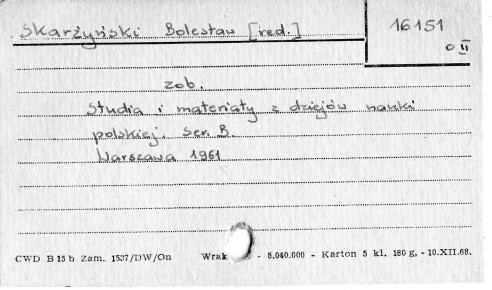 Skarżyński Bolesław [red.]
16151
0 II
zob.
Studia i materiały z dziejów nauki
polskiej. Ser. B.
Warszawa 1961
CWD B 15 b Zam. 1537/DW/On Wrak - 5.040.000 - Karton 5 kl. 180 g, - 10.XII.68.